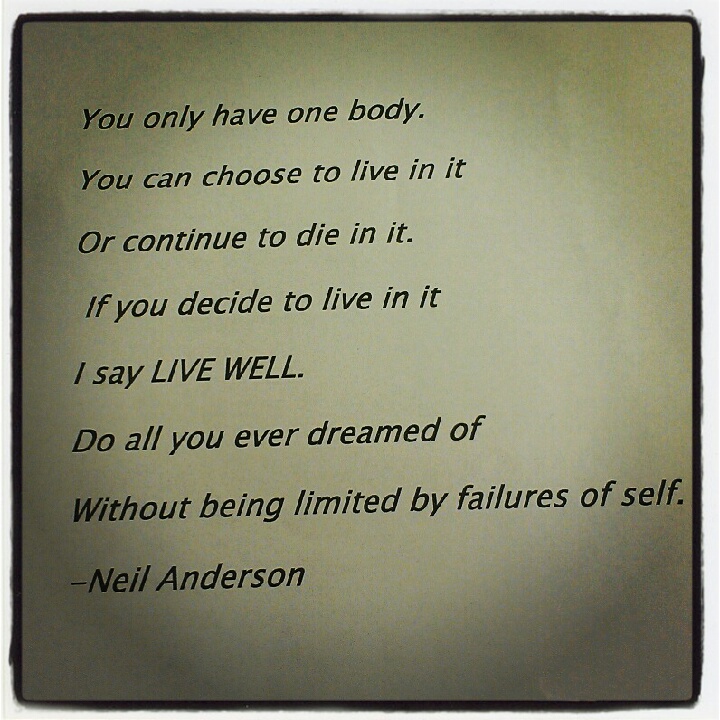 You only have one body.
You can choose to live in it
Or continue to die in it.
If you decide to live in it
I say LIVE WELL.
Do all you ever dreamed of
Without being limited by failures of self.
–Neil Anderson